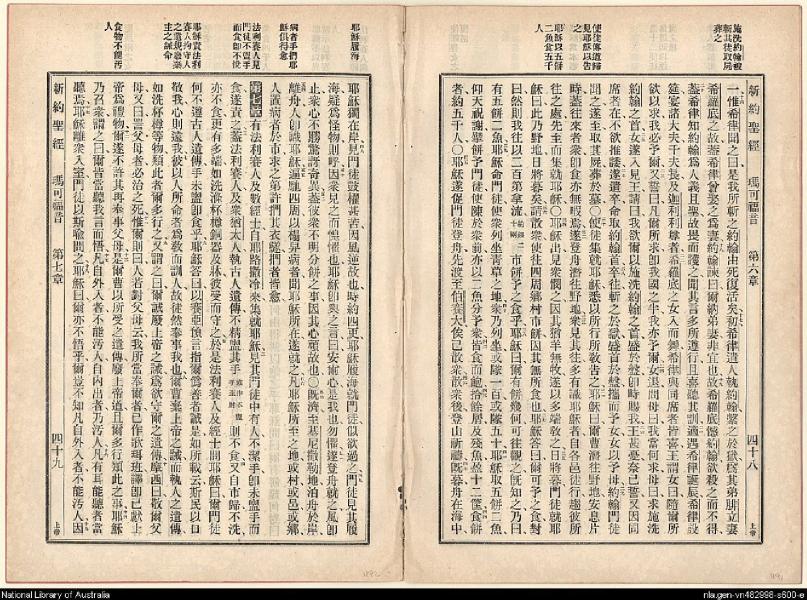 施洗約翰被
斬其徒取屍
葬之
使徒傳道歸
見耶穌以告
耶穌以五餅
二魚食五千
人
新約聖經 馬可福音 第六章 四十八 上帝
一惟希律聞之曰是我所斬之約翰由死復活矣初希律遣人執約翰繫之於獄爲其弟腓立妻
希羅底之故蓋希律曾娶之爲妻約翰諫曰爾納弟妻非宜也故希羅底憾約翰欲殺之而不得
蓋希律知約翰爲人義且聖故畏而護之聞其言多所遵行且喜聽其訓適遇希律誕辰希律設
筵宴諸大夫千夫長及迦利利尊者希羅底之女入而舞希律與同席者皆喜王謂女曰隨爾所
欲以求我必予爾又誓曰凡爾所求卽我國之半我亦予爾女退問母曰我當何求母曰求施洗
約翰之首女遂入見王請曰我欲爾以施洗約翰之首盛於盤卽時賜我王甚憂奈已誓又因同
席者在不欲推諉遂遣卒命取約翰首卒往斬之於獄盛首於盤攜而予女女以予母約翰門徒
聞之遂至取其屍葬於墓〇使徒集就耶穌悉以所行所敎告之耶穌曰爾曹潛往野地安息片
時蓋往來者衆卽食亦無暇焉遂登舟潛往野地衆見其往多有識耶穌者自各邑徒行趨彼所
往之處先至而集就耶穌〇耶穌出見衆憫之因其猶羊無牧遂以多端敎之日將暮門徒就耶
穌曰此乃野地日將暮矣請散衆使往四周鄕村市餅因其無所食也耶穌答曰爾可予之食對
曰然則我往以二百第拿流市餅予之食乎耶穌曰爾有餅幾何可往觀之旣知之乃曰
有五餅二魚耶穌命門徒使衆列坐靑草之地衆乃列坐或隊一百或隊五十耶穌取五餅二魚
仰天祝謝擘餅予門徒使陳於衆前亦以二魚分予衆皆食而飽拾餘屑及殘魚盈十二筐食餅
者約五千人〇耶穌遂促門徒登舟先渡至伯賽大俟己散衆散衆後登山祈禱旣暮舟在海中
耶穌履海
病者手捫耶
穌俱得愈
法利賽人見
門徒不盥手
而食卽不悅
耶穌責法利
賽人拘守人
之遺規廢棄
主之誡命
食物不能汚
人
耶穌獨在岸見門徒鼓櫂甚苦因風逆故也時約四更耶穌履海就門徒似欲過之門徒見其履
海疑爲怪物則呼因衆見之而惶懼也耶穌卽與之言曰安爾心是我也勿懼遂登舟就之風卽
止衆心不勝驚訝奇異蓋彼衆不明分餅之事因其心頑故也〇旣濟至基尼撒勒地泊舟於岸
離舟人卽識耶穌遍馳四周以榻舁病者聞耶穌所在遂就之凡耶穌所至之地或村或邑或鄕
人置病者於市求之第許捫其衣繸捫者皆愈
第七章有法利賽人及數經士自耶路撒冷來集就耶穌見其門徒中有人不潔手卽未盥手而
食遂責之蓋法利賽人及衆猶太人執古人遺傳不精盥其手則不食又自市歸不洗
亦不食更有多端如洗滌杯樽銅器及牀彼受而守之於是法利賽人及經士問耶穌曰爾門徒
何不遵古人遺傳手未盥卽食乎耶穌答曰以賽亞預言指爾僞善者誠是如所載云斯民以口
敬我心則遠我彼以人所命者爲敎而訓人故徒然奉事我也爾曹棄上帝之誡而執人之遺傳
如洗杯樽等物類此者爾多行之又謂之曰爾誠廢上帝之誡爲欲守爾之遺傳摩西曰敬爾父
母又曰詈父母者必治之死惟爾則曰人若對父母云我所當奉爾者已作歌珥班譯卽已獻上
帝爲禮物爾遂不許其再奉事父母是爾曹以所受之遺傳廢上帝道且爾多行類此之事耶穌
乃召衆謂之曰爾皆當聽我言而悟凡自外入者不能汚人自內出者乃汚人凡有耳能聽者當
聽焉耶穌離衆入室門徒以斯喩問之耶穌曰爾亦不悟乎爾豈不知凡自外入者不能汚人因
新約聖經 馬可福音 第七章 四十九 上帝
National Library of Australia
nla.gen-vn482998-s600-e